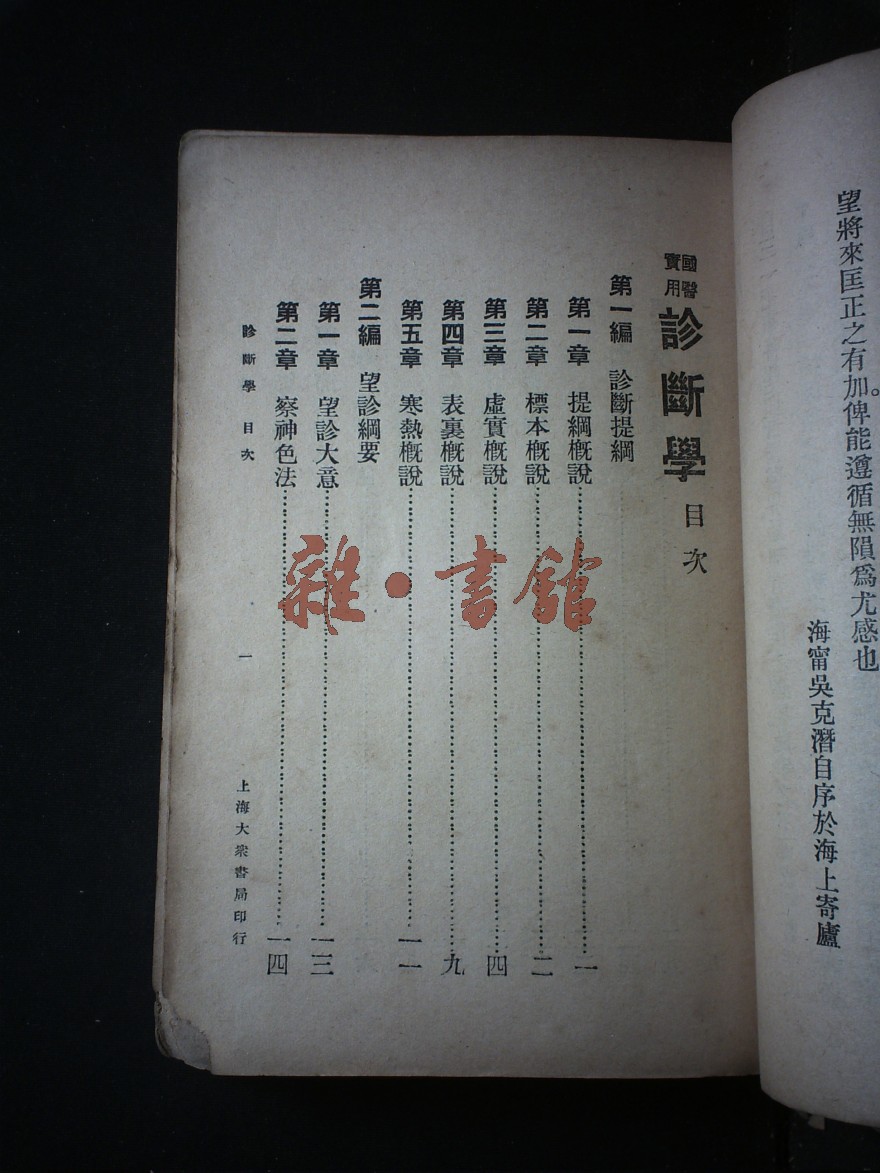 望將來匡正之有加。俾能遵循無隕爲尤感也
海甯吳克潛自序於海上寄廬
國醫實用 診斷學 目次
第一編 診斷提綱
第一章 提綱概說……一
第二章 標本概說……二
第三章 虛實概說……四
第四章 表裏概說……九
第五章 寒熱概說……一一
第二編 望診綱要
第一章 望診大意……一三
第二章 察神色法……一四
診斷學 目次 一 上海大衆書局印行
雜·書館